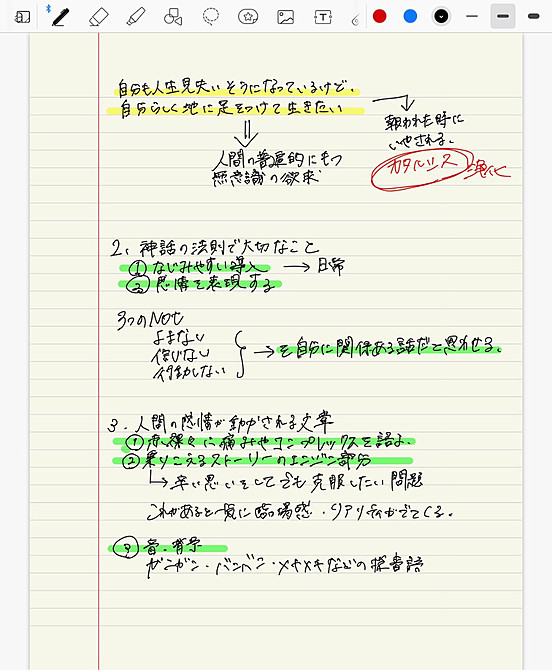 自分も人生見失いそうになっているけど、
自分らしく地に足をつけて生きたい
報われた時に
いやされる。
カタルシス 強化
人間の普遍的にもつ
無意識の欲求
2. 神話の法則で大切なこと
① なじみやすい導入 → 日常
② 感情を表現する
3つのNot
よまない
信じない
行動しない
→ を自分に関係ある話だと思わせる。
3. 人間の感情が動かされる文章
① 赤裸々に痛みやコンプレックスを語る。
② 乗りこえるストーリーのエンジン部分
辛い思いをしてでも克服したい問題
これがあると一気に臨場感・リアリティがでてくる。
③ 音・背景
ガンガン・バンバン・メキメキなどの擬音語